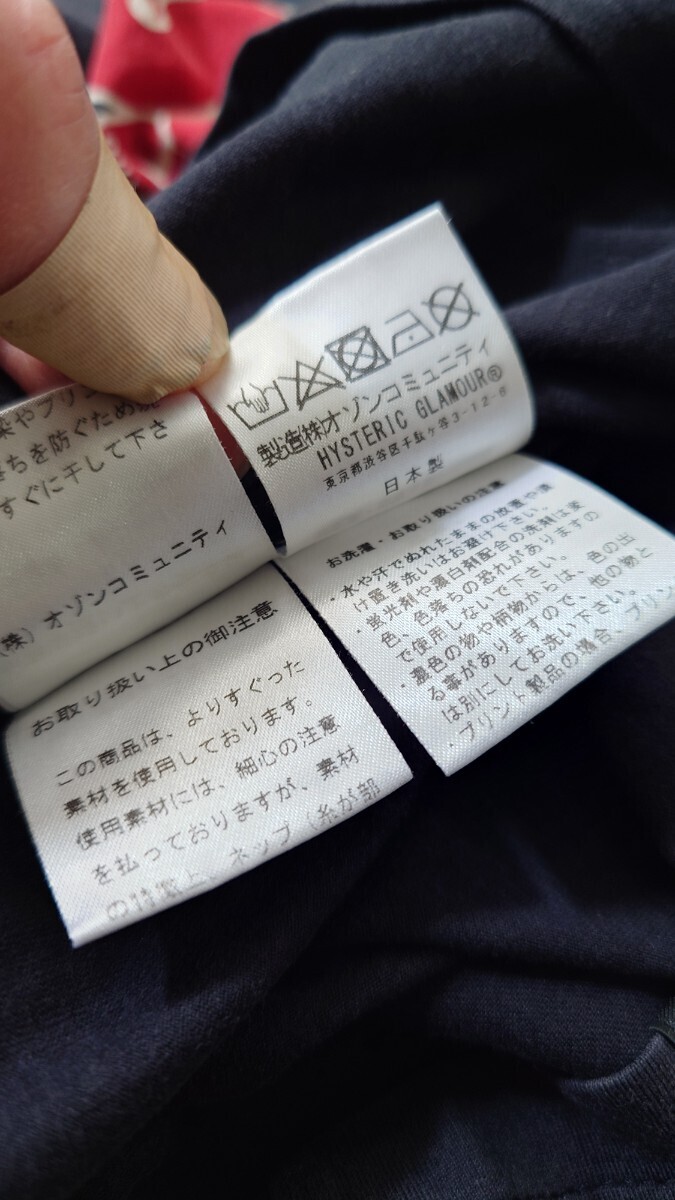 製造㈱オゾンコミュニティ
HYSTERIC GLAMOUR®
東京都渋谷区千駄ヶ谷3-12-8
日本製
落ちを防ぐため
すぐに干して下さ
(株) オゾンコミュニティ
お洗濯・お取り扱いの注意
・水や汗でぬれたままの放置や漬
け置き洗いはお避け下さい。
・蛍光剤や漂白剤配合の洗剤は変
色、色落ちの恐れがありますの
で使用しないで下さい。
・濃色の物や柄物からは、色の出
る事がありますので、他の物と
は別にしてお洗い下さい。
・プリント製品の場合、プリン
お取り扱い上の御注意
この商品は、よりすぐった
素材を使用しております。
使用素材には、細心の注意
を払っておりますが、素材
の特徴上、ネップ（糸が部